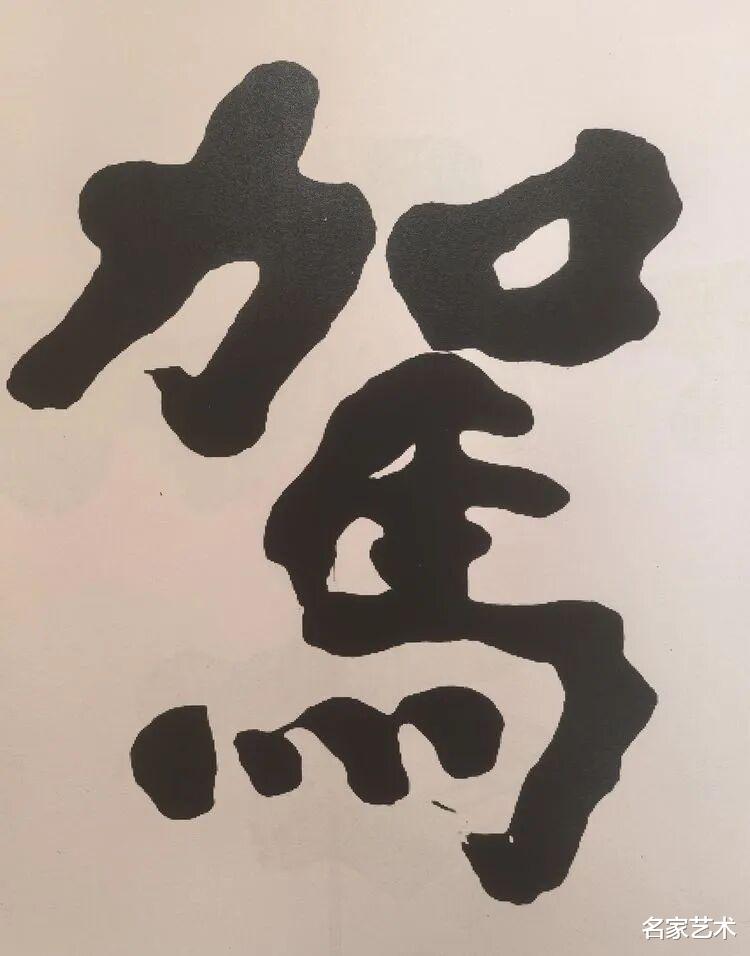 駕
名家艺术